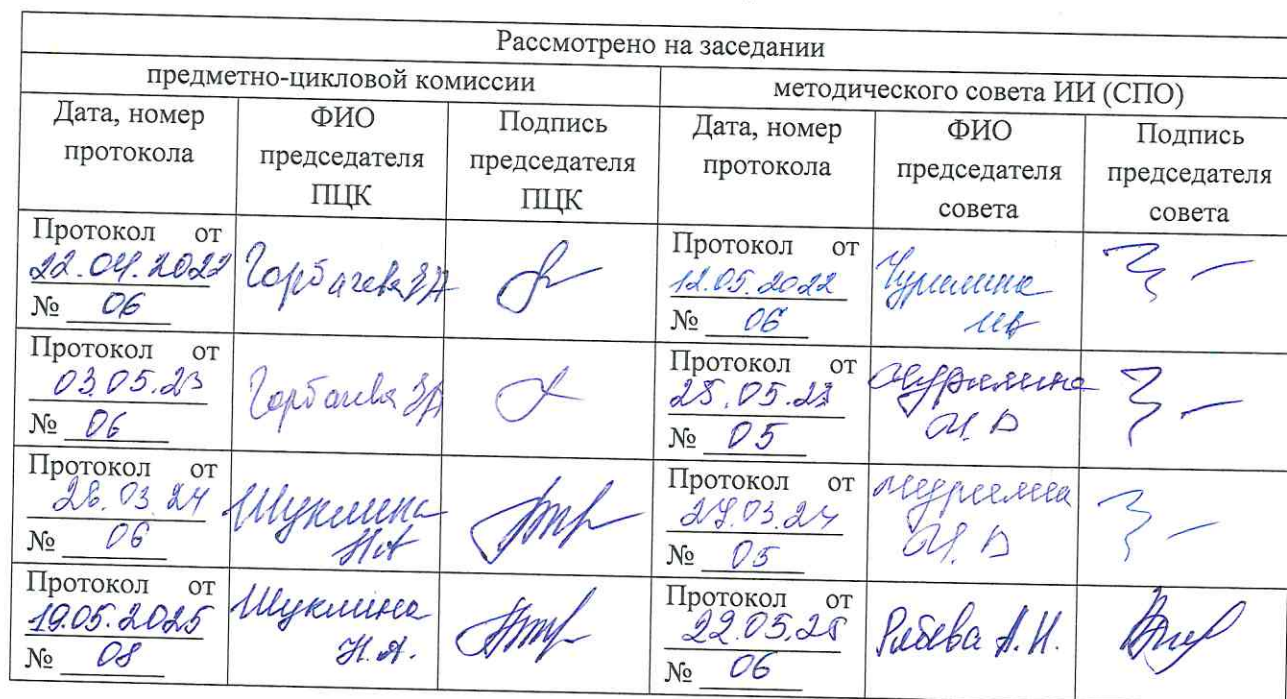 Рассмотрено на заседании
предметно-цикловой комиссии методического совета ИИ (СПО)
Дата, номер протокола ФИО председателя ПЦК Подпись председателя ПЦК Дата, номер протокола ФИО председателя совета Подпись председателя совета
Протокол от
22.04.2022
№ 06
Горбачева
Протокол от
12.05.2022
№ 06
Протокол от
03.05.23
№ 06
Горбачева
Протокол от
25.05.23
№ 05
И. В
Протокол от
26.03.24
№ 06
Шуклина
НА
Протокол от
№ 05
И. В
Протокол от
19.05.2025
№ 08
Шуклина
Н.А.
Протокол от
№ 06
А.И.